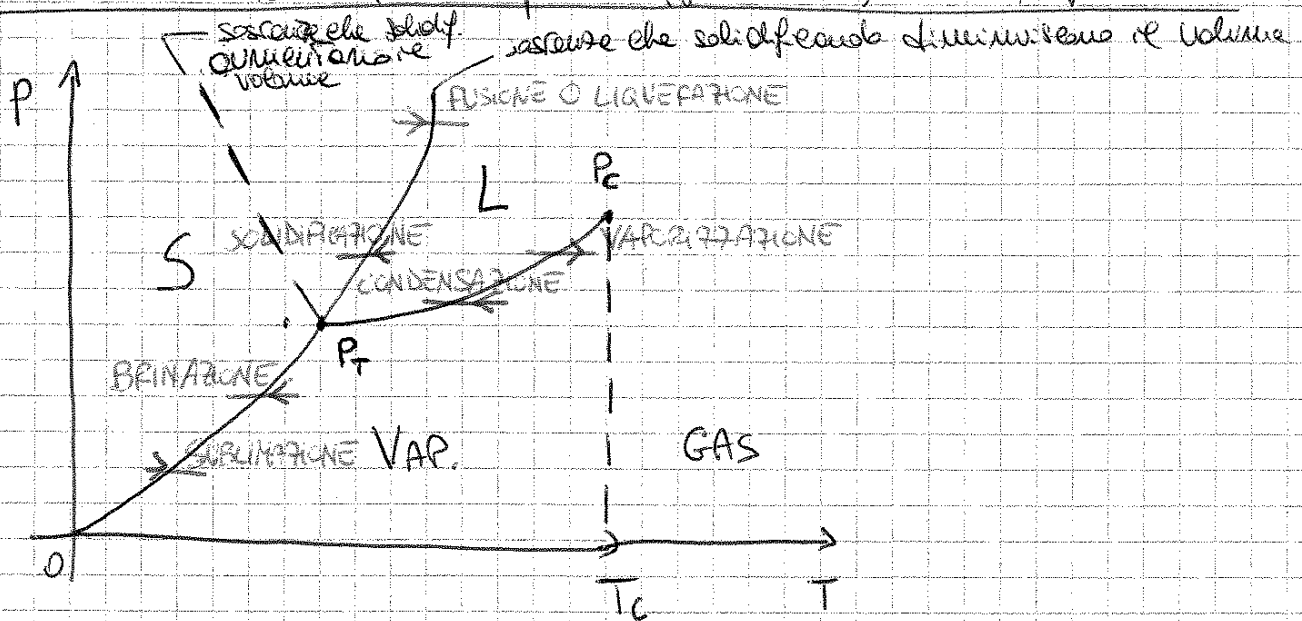 sostanze che solidif.
aumentano il
volume
sostanze che solidificando diminuiscono il volume
P
FUSIONE O LIQUEFAZIONE
Pc
L
SOLIDIFICAZIONE
VAPORIZZAZIONE
S
CONDENSAZIONE
PT
BRINAZIONE
SUBLIMAZIONE
VAP.
GAS
O
Tc
T